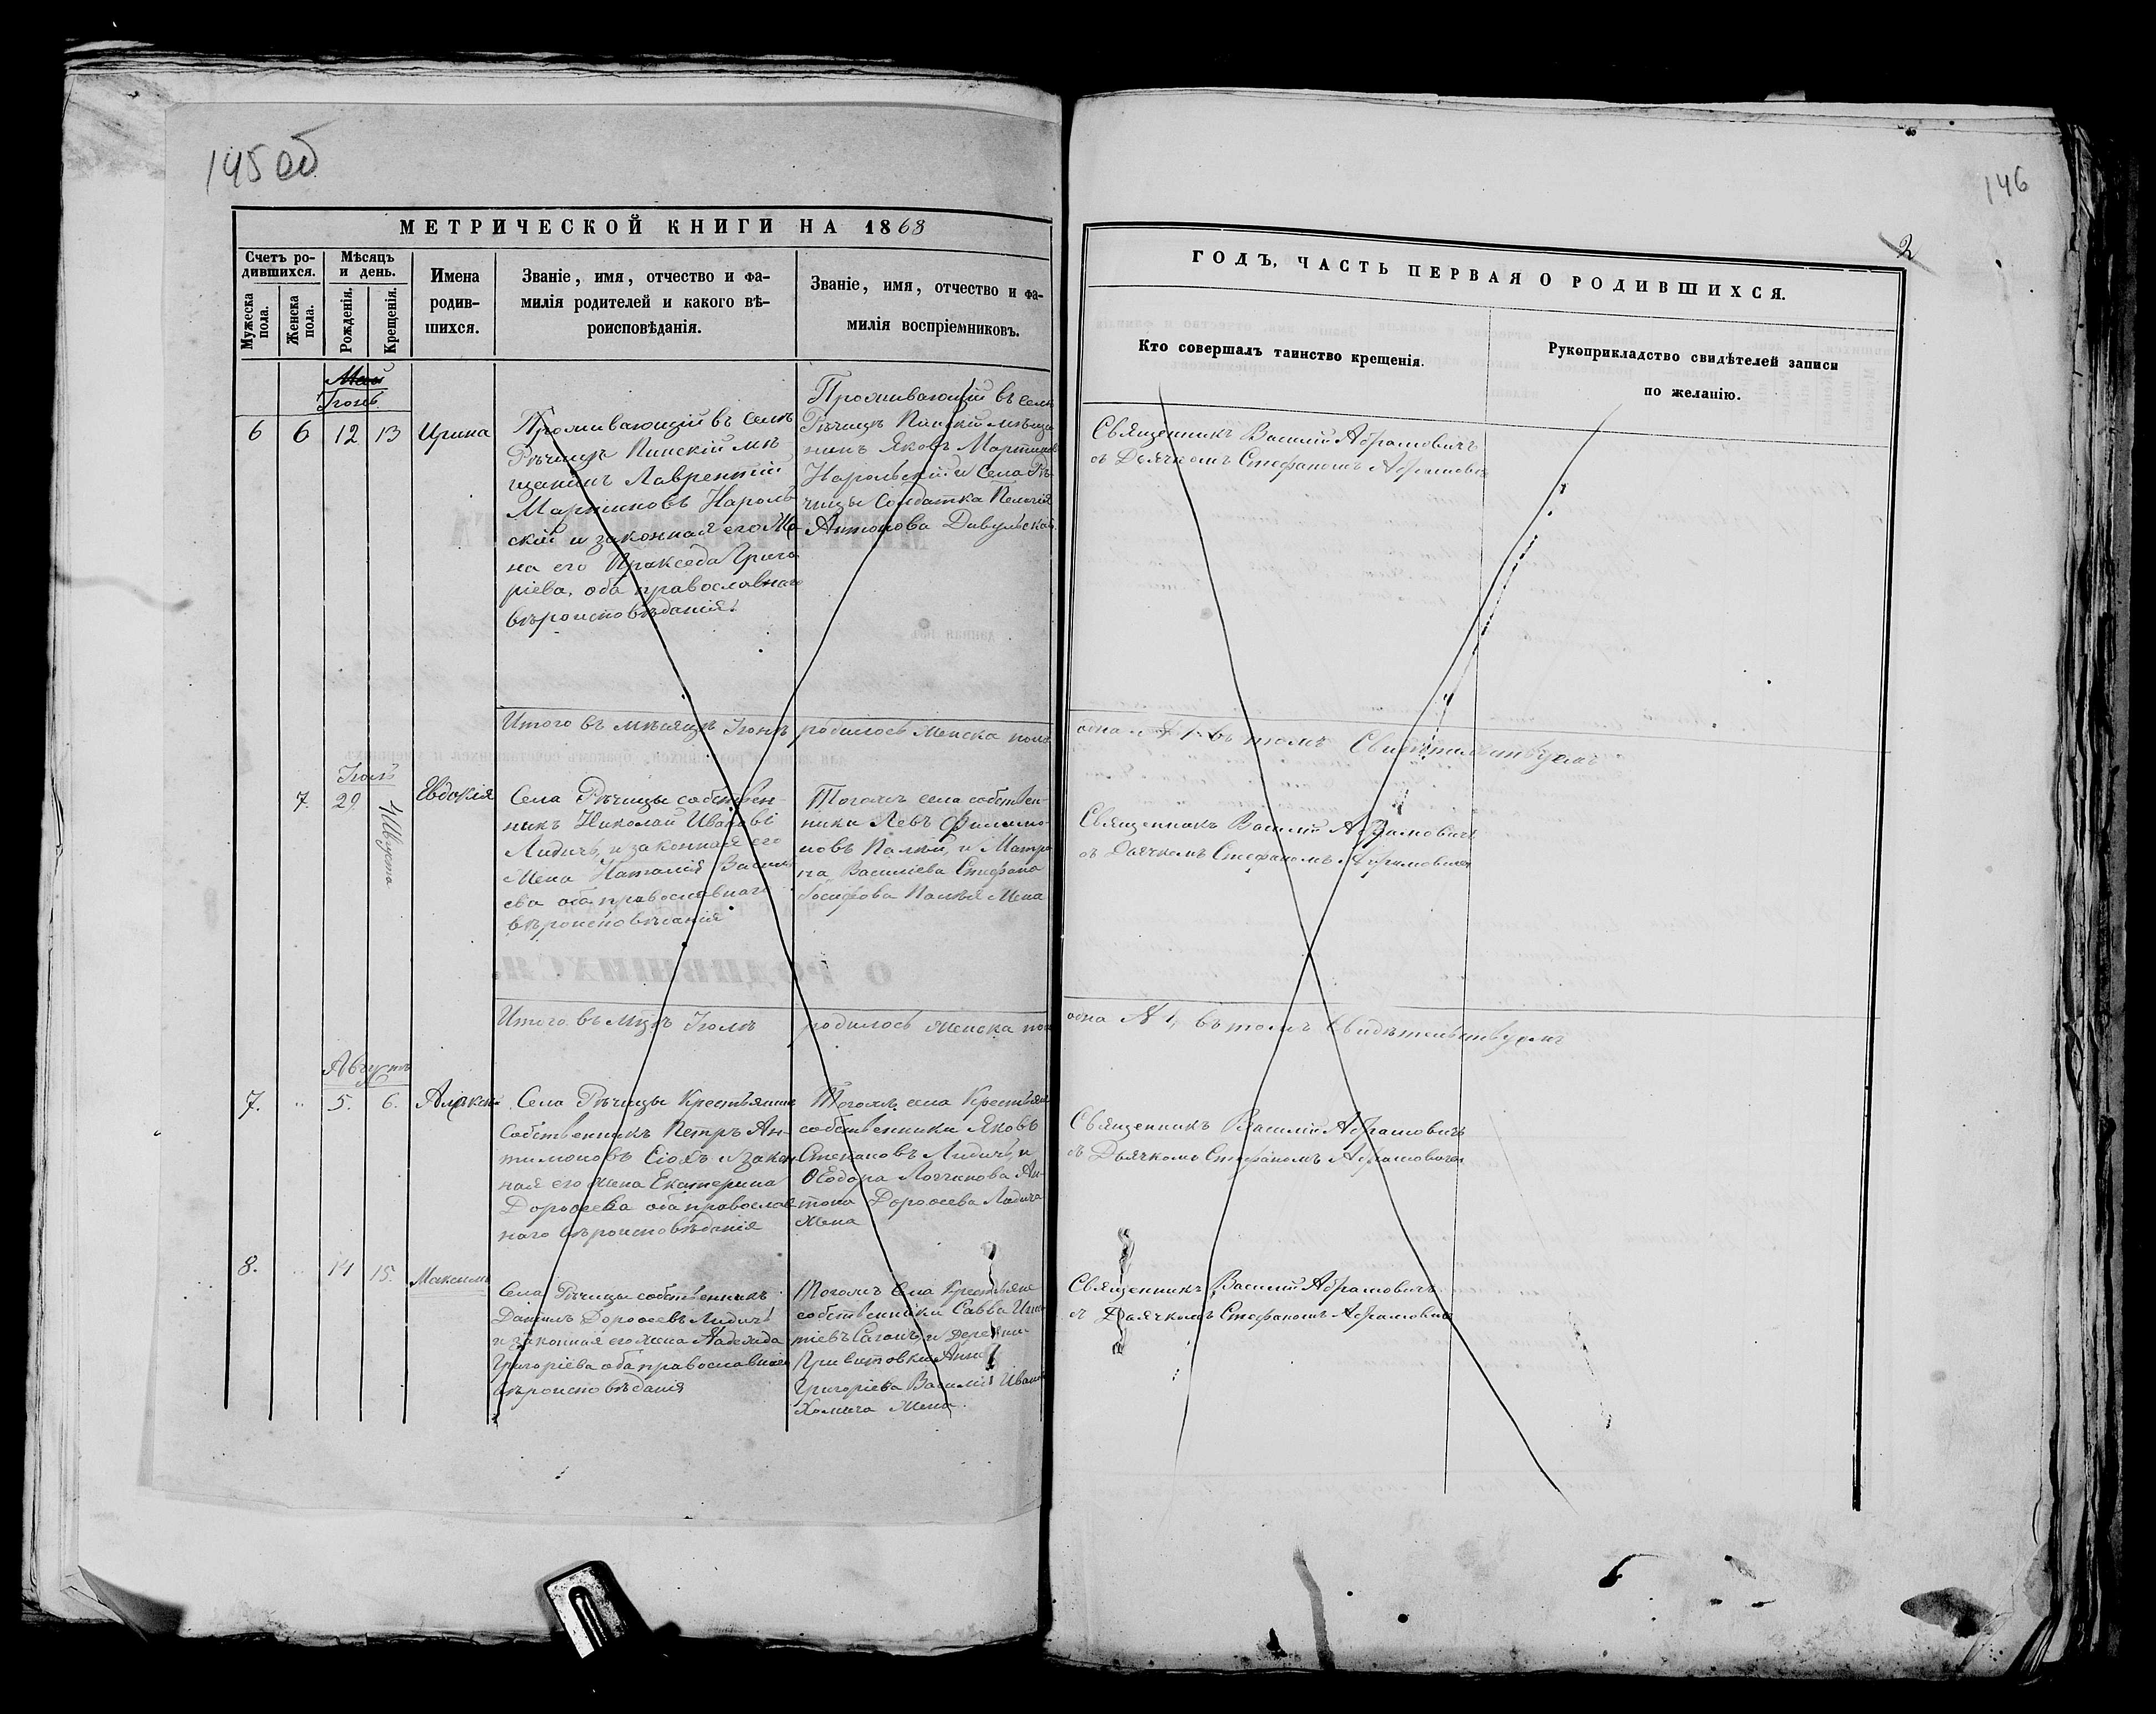 145 об
МЕТРИЧЕСКОЙ КНИГИ НА 1868
Счетъ ро-
дившихся.
Мужеска пола.
Женска пола.
Мѣсяцъ
и день.
Рожденія.
Крещенія.
Имена
родив-
шихся.
Званіе, имя, отчество и фа-
милія родителей и какого вѣ-
роисповѣданія.
Званіе, имя, отчество и фа-
милія воспріемниковъ.
Май
Іюнь
6 6 12 13 Ирина
Проживающій въ селѣ
Рѣчицѣ Пинскій мѣ
щанинъ Лаврентій
Мартиновъ Нароль
скій и законная его
на его Праксeда Григо
ріева, оба православнаго
вѣроисповѣданія.
Проживающій въ селѣ
Рѣчицѣ Пинскій мѣща
нинъ Яковъ Мартинов
Нарольскій и Села Рѣ-
чицы Солдатка Пелагія
Антонова
Итого въ мѣсяцѣ Іюнѣ родилось женска пола
Іюль
7. 29 1 Августа Евдокія
Села Рѣчицы собствен-
никъ Николай Иванові
Лидичъ, и законная его
жена Наталія Василі
ева оба православнаго
вѣроисповѣданія
Тогожъ села собствен-
ники Левъ Филимо-
новъ Палъй, и Матро
на Василіева Стефана
Іосифова Палѣя жена
Итого въ мцѣ Іюлѣ родилось женска пола
Августъ
7. 5. 6. Алексѣй
Села Рѣчицы Крестьянинъ
Собственникъ Петръ Ан-
тимоновъ и закон
ная его жена Екатерина
Дороѳеева оба православ
наго вѣроисповѣданія
Тогожъ села Крестьяне
собственники Яковъ
Степановъ Лидичъ, и
Ѳеодора Логгинова Ан-
тона Дороѳеева Лидича
жена
8. 14 15. Максимъ
Села Рѣчицы собственникъ
Даніилъ Дороѳеевъ Лидичъ
и законная его жена Надежда
Григоріева оба православнаго
вѣроисповѣданія
Тогожъ села Крестьяне
собственники Савва Игна
тіевъ и деревни
Анна
Григоріева Василія Иванов
Хомича жена.
146
2
ГОДЪ, ЧАСТЬ ПЕРВАЯ О РОДИВШИХСЯ.
Кто совершалъ таинство крещенія.
Рукоприкладство свидѣтелей записи
по желанію.
Священникъ Василій Абрамовичъ
съ Дьячкомъ Стефаномъ Абрамовичемъ
одна № 1, въ томъ Свидѣтельствуемъ
Священникъ Василій Абрамовичъ
съ Дьячкомъ Стефаномъ Абрамовичемъ
одна № 1, въ томъ Свидѣтельствуемъ
Священникъ Василій Абрамовичъ
съ Дьячкомъ Стефаномъ Абрамовичемъ
Священникъ Василій Абрамовичъ
съ Дьячкомъ Стефаномъ Абрамовичемъ